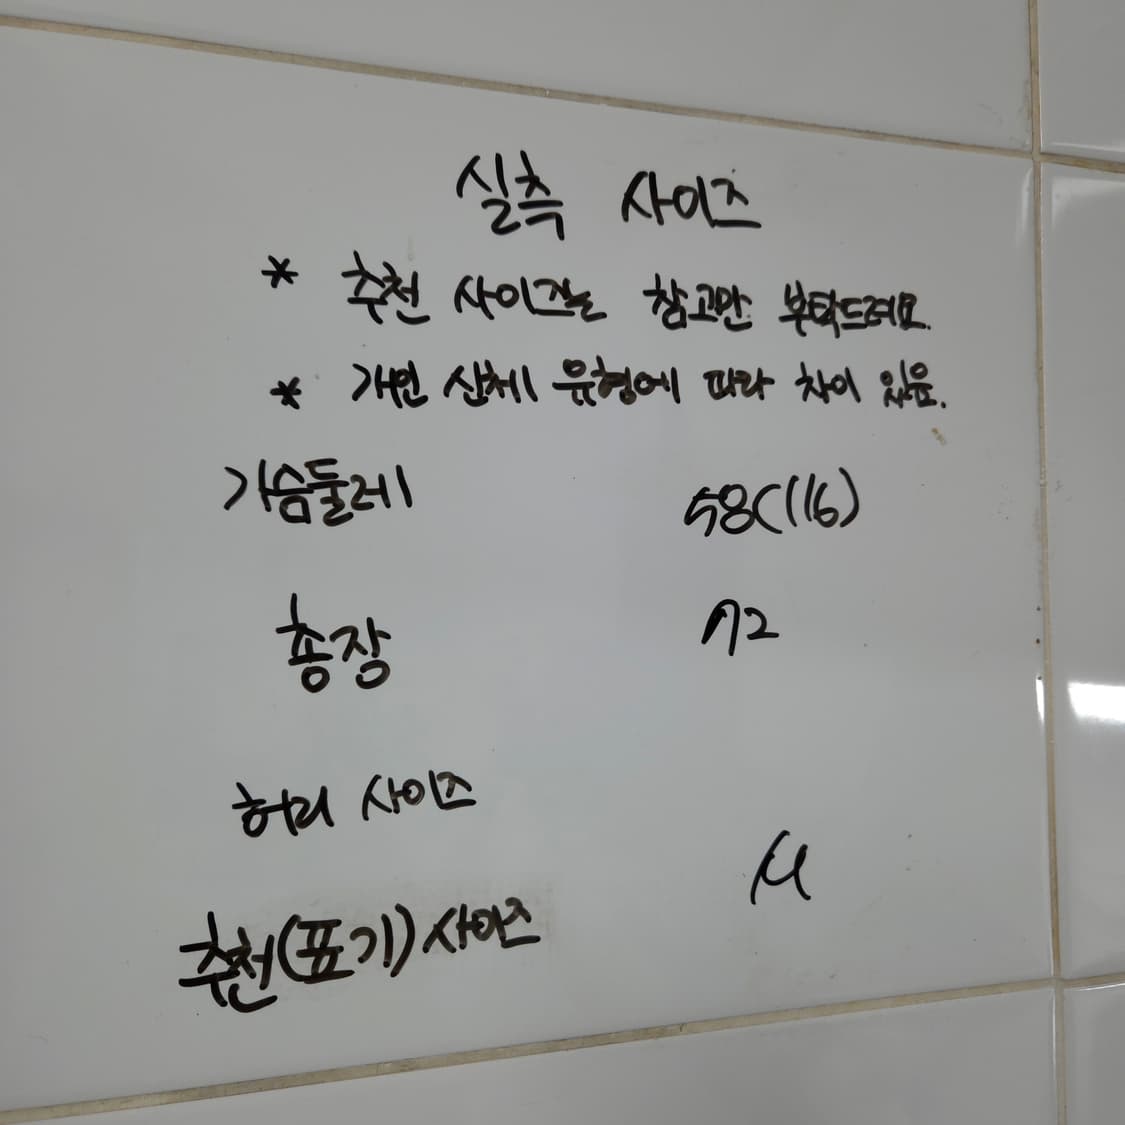 실측 사이즈
* 추천 사이즈는 참고만 부탁드려요.
* 개인 신체 유형에 따라 차이 있음.
가슴둘레 58(116)
총장 72
허리 사이즈
추천(표기) 사이즈 M